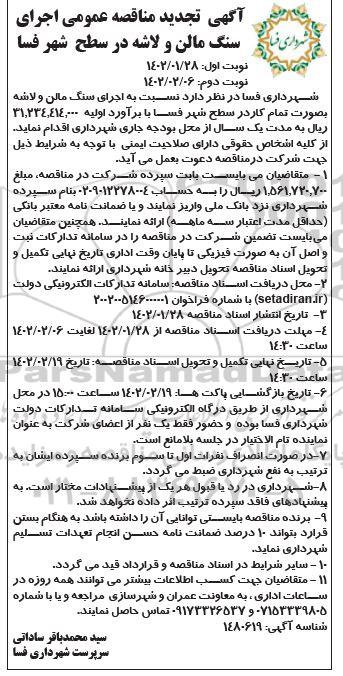 آگهی تجدید مناقصه عمومی اجرای
سنگ مالن و لاشه در سطح شهر فسا
شهرداری فسا
نوبت اول: ۱۴۰۲/۰۱/۲۸
نوبت دوم: ۱۴۰۲/۰۲/۰۶
شهرداری فسا در نظر دارد نسبت به اجرای سنگ مالن و لاشه
بصورت تمام کار در سطح شهر فسا با برآورد اولیه ۳۱,۲۳۴,۴۱۴,۰۰۰
ریال به مدت یک سال از محل بودجه جاری شهرداری اقدام نماید.
از کلیه اشخاص حقوقی دارای صلاحیت ایمنی با توجه به شرایط ذیل
جهت شرکت در مناقصه دعوت بعمل می آید.
۱- متقاضیان می بایست بابت سپرده شرکت در مناقصه، مبلغ
۱,۵۶۱,۷۲۰,۷۰۰ ریال را به حساب ۰۲۰۹۰۱۲۲۷۸۰۰۴ بنام سپرده
شهرداری نزد بانک ملی واریز نمایند و یا ضمانت نامه معتبر بانکی
(حداقل مدت اعتبار سه ماهه) ارائه نمایند. همچنین متقاضیان
می بایست تضمین شرکت در مناقصه را در سامانه تدارکات ثبت
و اصل آن به صورت فیزیکی تا پایان وقت اداری تاریخ نهایی تکمیل و
تحویل اسناد مناقصه تحویل دبیر خانه شهرداری ارائه نمایند.
۲- محل دریافت اسناد مناقصه: سامانه تدارکات الکترونیکی دولت
(setadiran.ir) با شماره فراخوان ۲۰۰۲۰۰۵۱۴۶۰۰۰۰۰۱
۳- تاریخ انتشار اسناد مناقصه ۱۴۰۲/۰۱/۲۸
۴- مهلت دریافت اسناد مناقصه از ۱۴۰۲/۰۱/۲۸ لغایت ۱۴۰۲/۰۲/۰۶
ساعت ۱۴:۳۰
۵- تاریخ نهایی تکمیل و تحویل اسناد مناقصه: تاریخ ۱۴۰۲/۰۲/۱۹
ساعت ۱۴:۳۰
۶- تاریخ بازگشایی پاکت ها: ۱۴۰۲/۰۲/۱۹ ساعت ۱۵:۰۰ در محل
شهرداری از طریق درگاه الکترونیکی سامانه تدارکات دولت
شهرداری فسا بوده و حضور فقط یک نفر از اعضای شرکت به عنوان
نماینده تام الاختیار در جلسه بلامانع است.
۷- در صورت انصراف نفرات اول تا سوم برنده سپرده ایشان به
ترتیب به نفع شهرداری ضبط می گردد.
۸- شهرداری در رد یا قبول هر یک از پیشنهادات مختار است. به
پیشنهادهای فاقد سپرده ترتیب اثر داده نخواهد شد.
۹- برنده مناقصه بایستی توانایی آن را داشته باشد به هنگام بستن
قرارد بتواند ۱۰ درصد ضمانت نامه حسن انجام تعهدات تسلیم
شهرداری نماید.
۱۰- سایر شرایط در اسناد مناقصه و قرارداد قید می گردد.
۱۱- متقاضیان جهت کسب اطلاعات بیشتر می توانند همه روزه در
ساعات اداری ، به معاونت عمران و شهرسازی مراجعه و یا با شماره
۰۷۱۵۳۳۳۹۸۰۵ و ۰۹۱۷۳۳۲۶۵۳۷ تماس حاصل نمایند.
شناسه آگهی: ۱۴۸۰۶۱۹
سید محمدباقر ساداتی
سرپرست شهرداری فسا